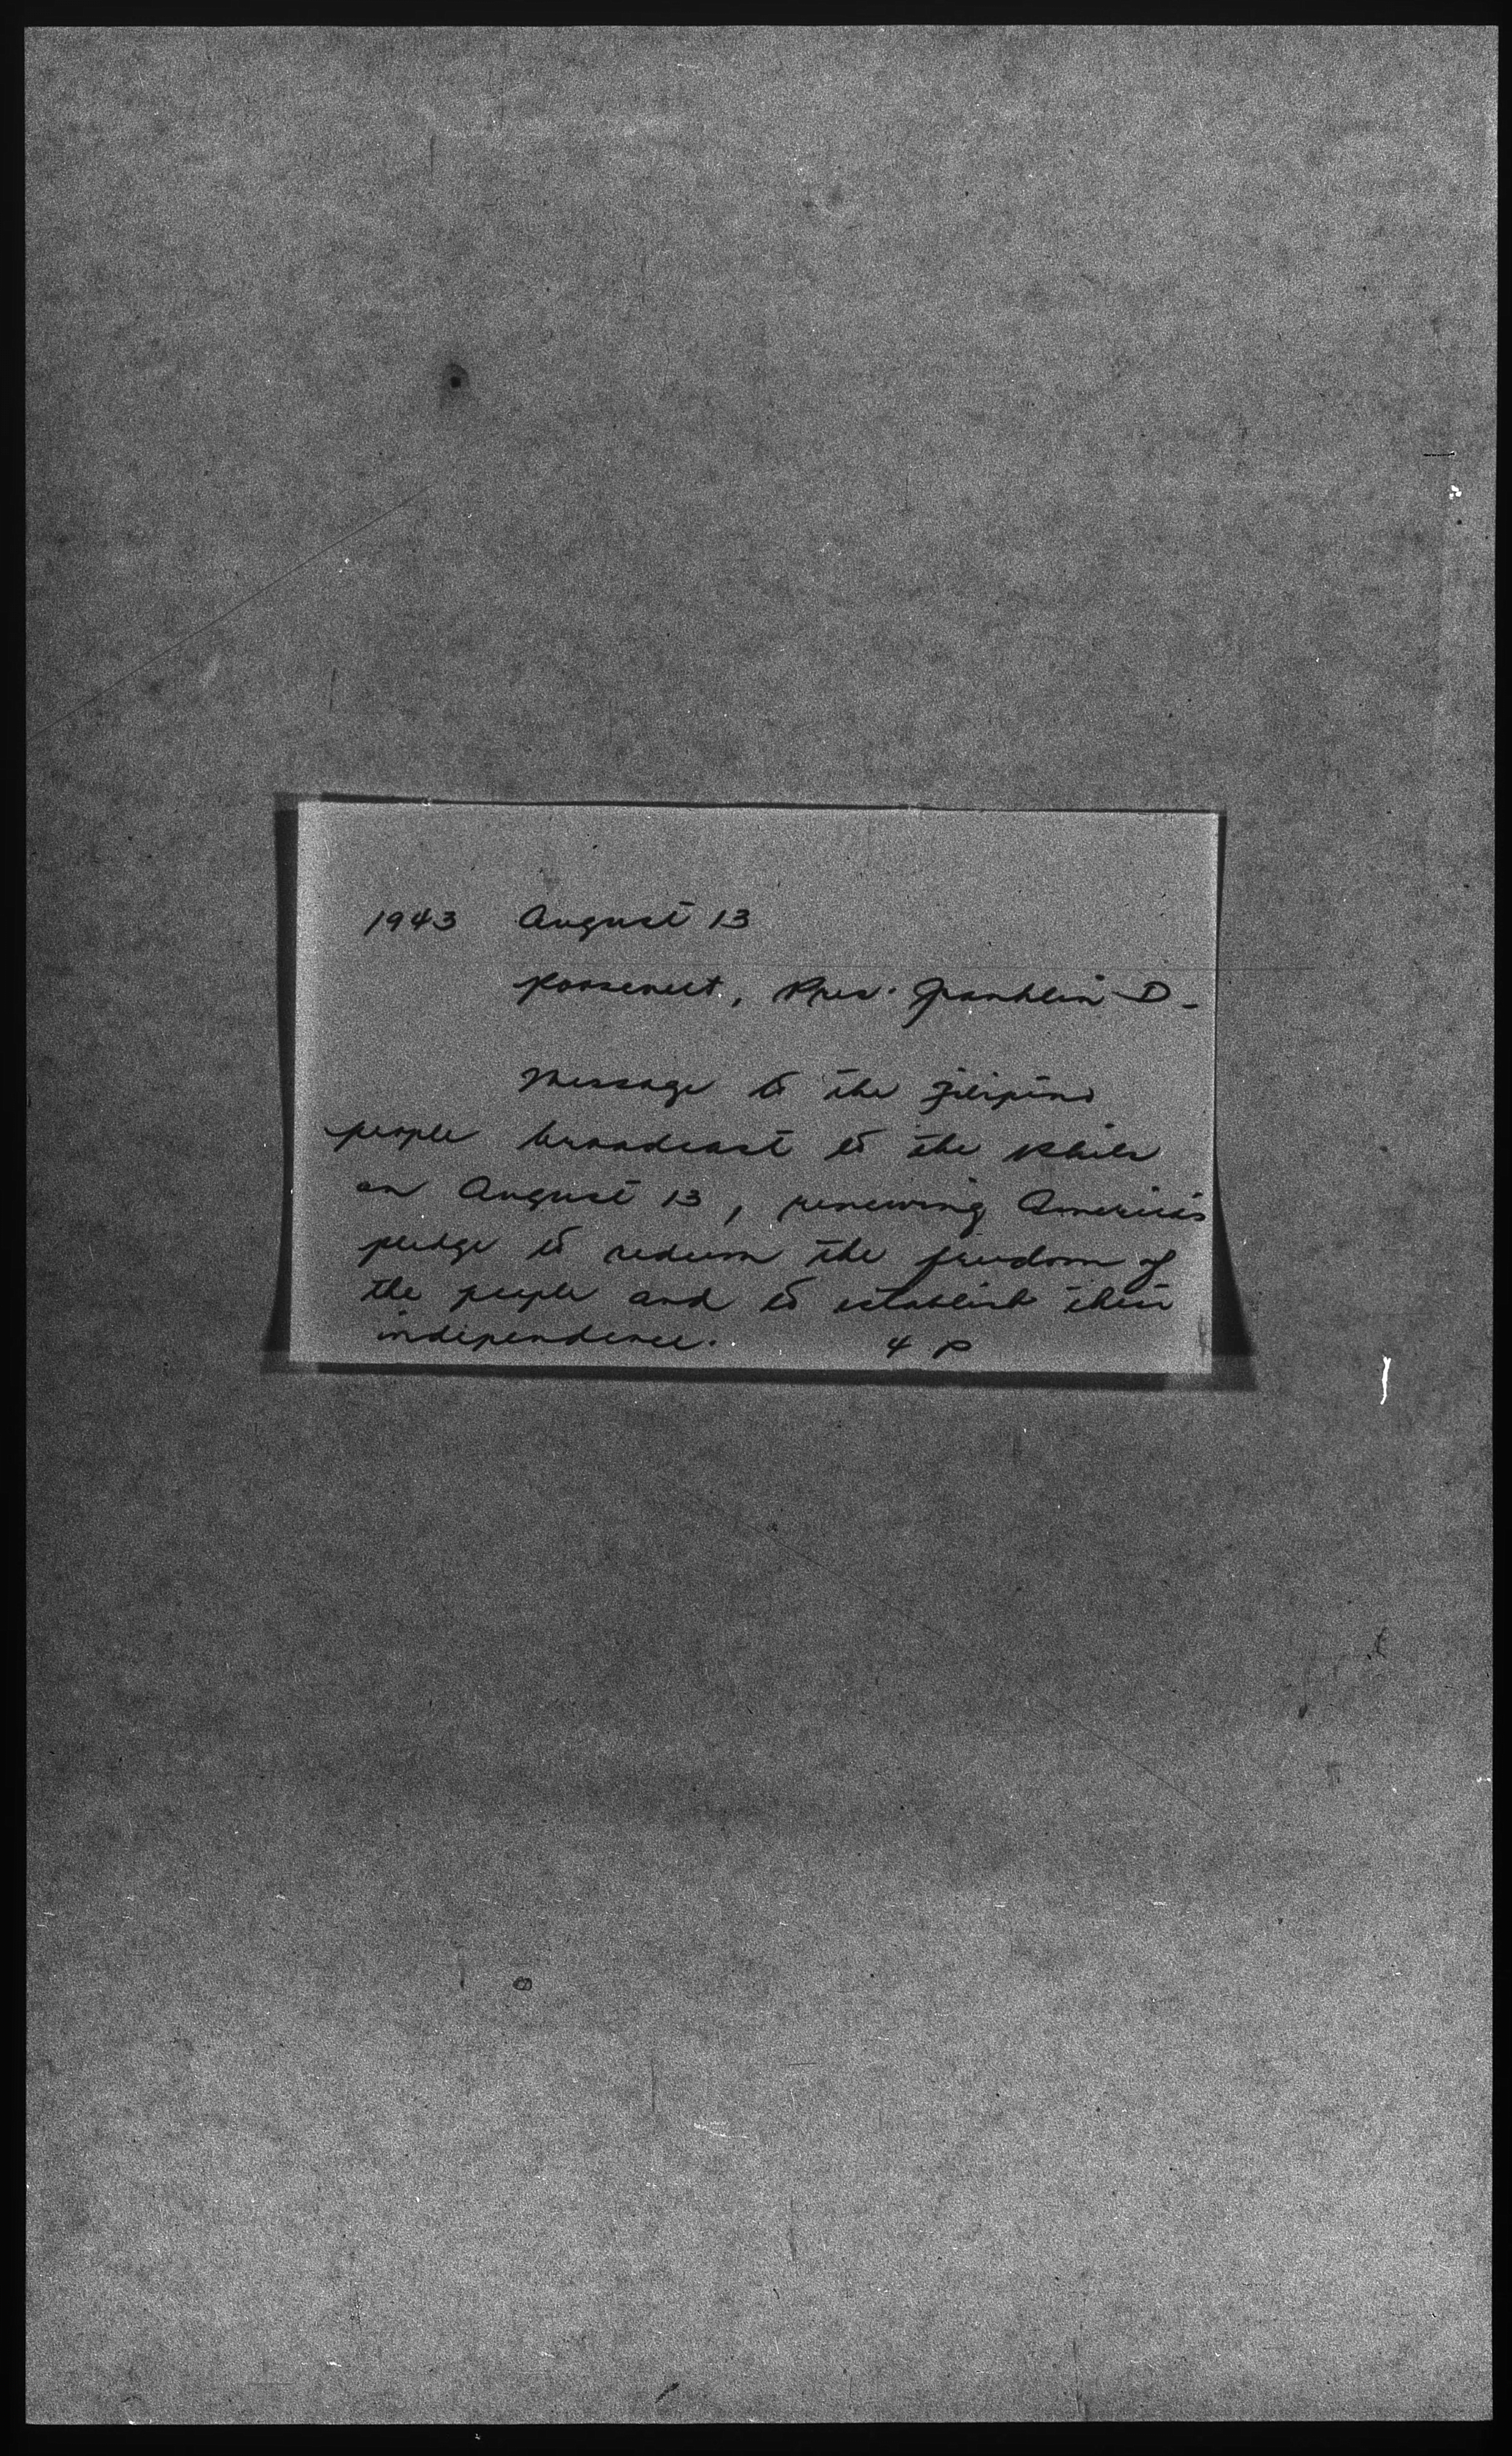 1943 August 13
Roosevelt, Pres. Franklin D-
Message to the Filipino
people broadcast to the Phils
on August 13, renewing America's
pledge to redeem the freedom of
the people and to establish their
independence. 4 p